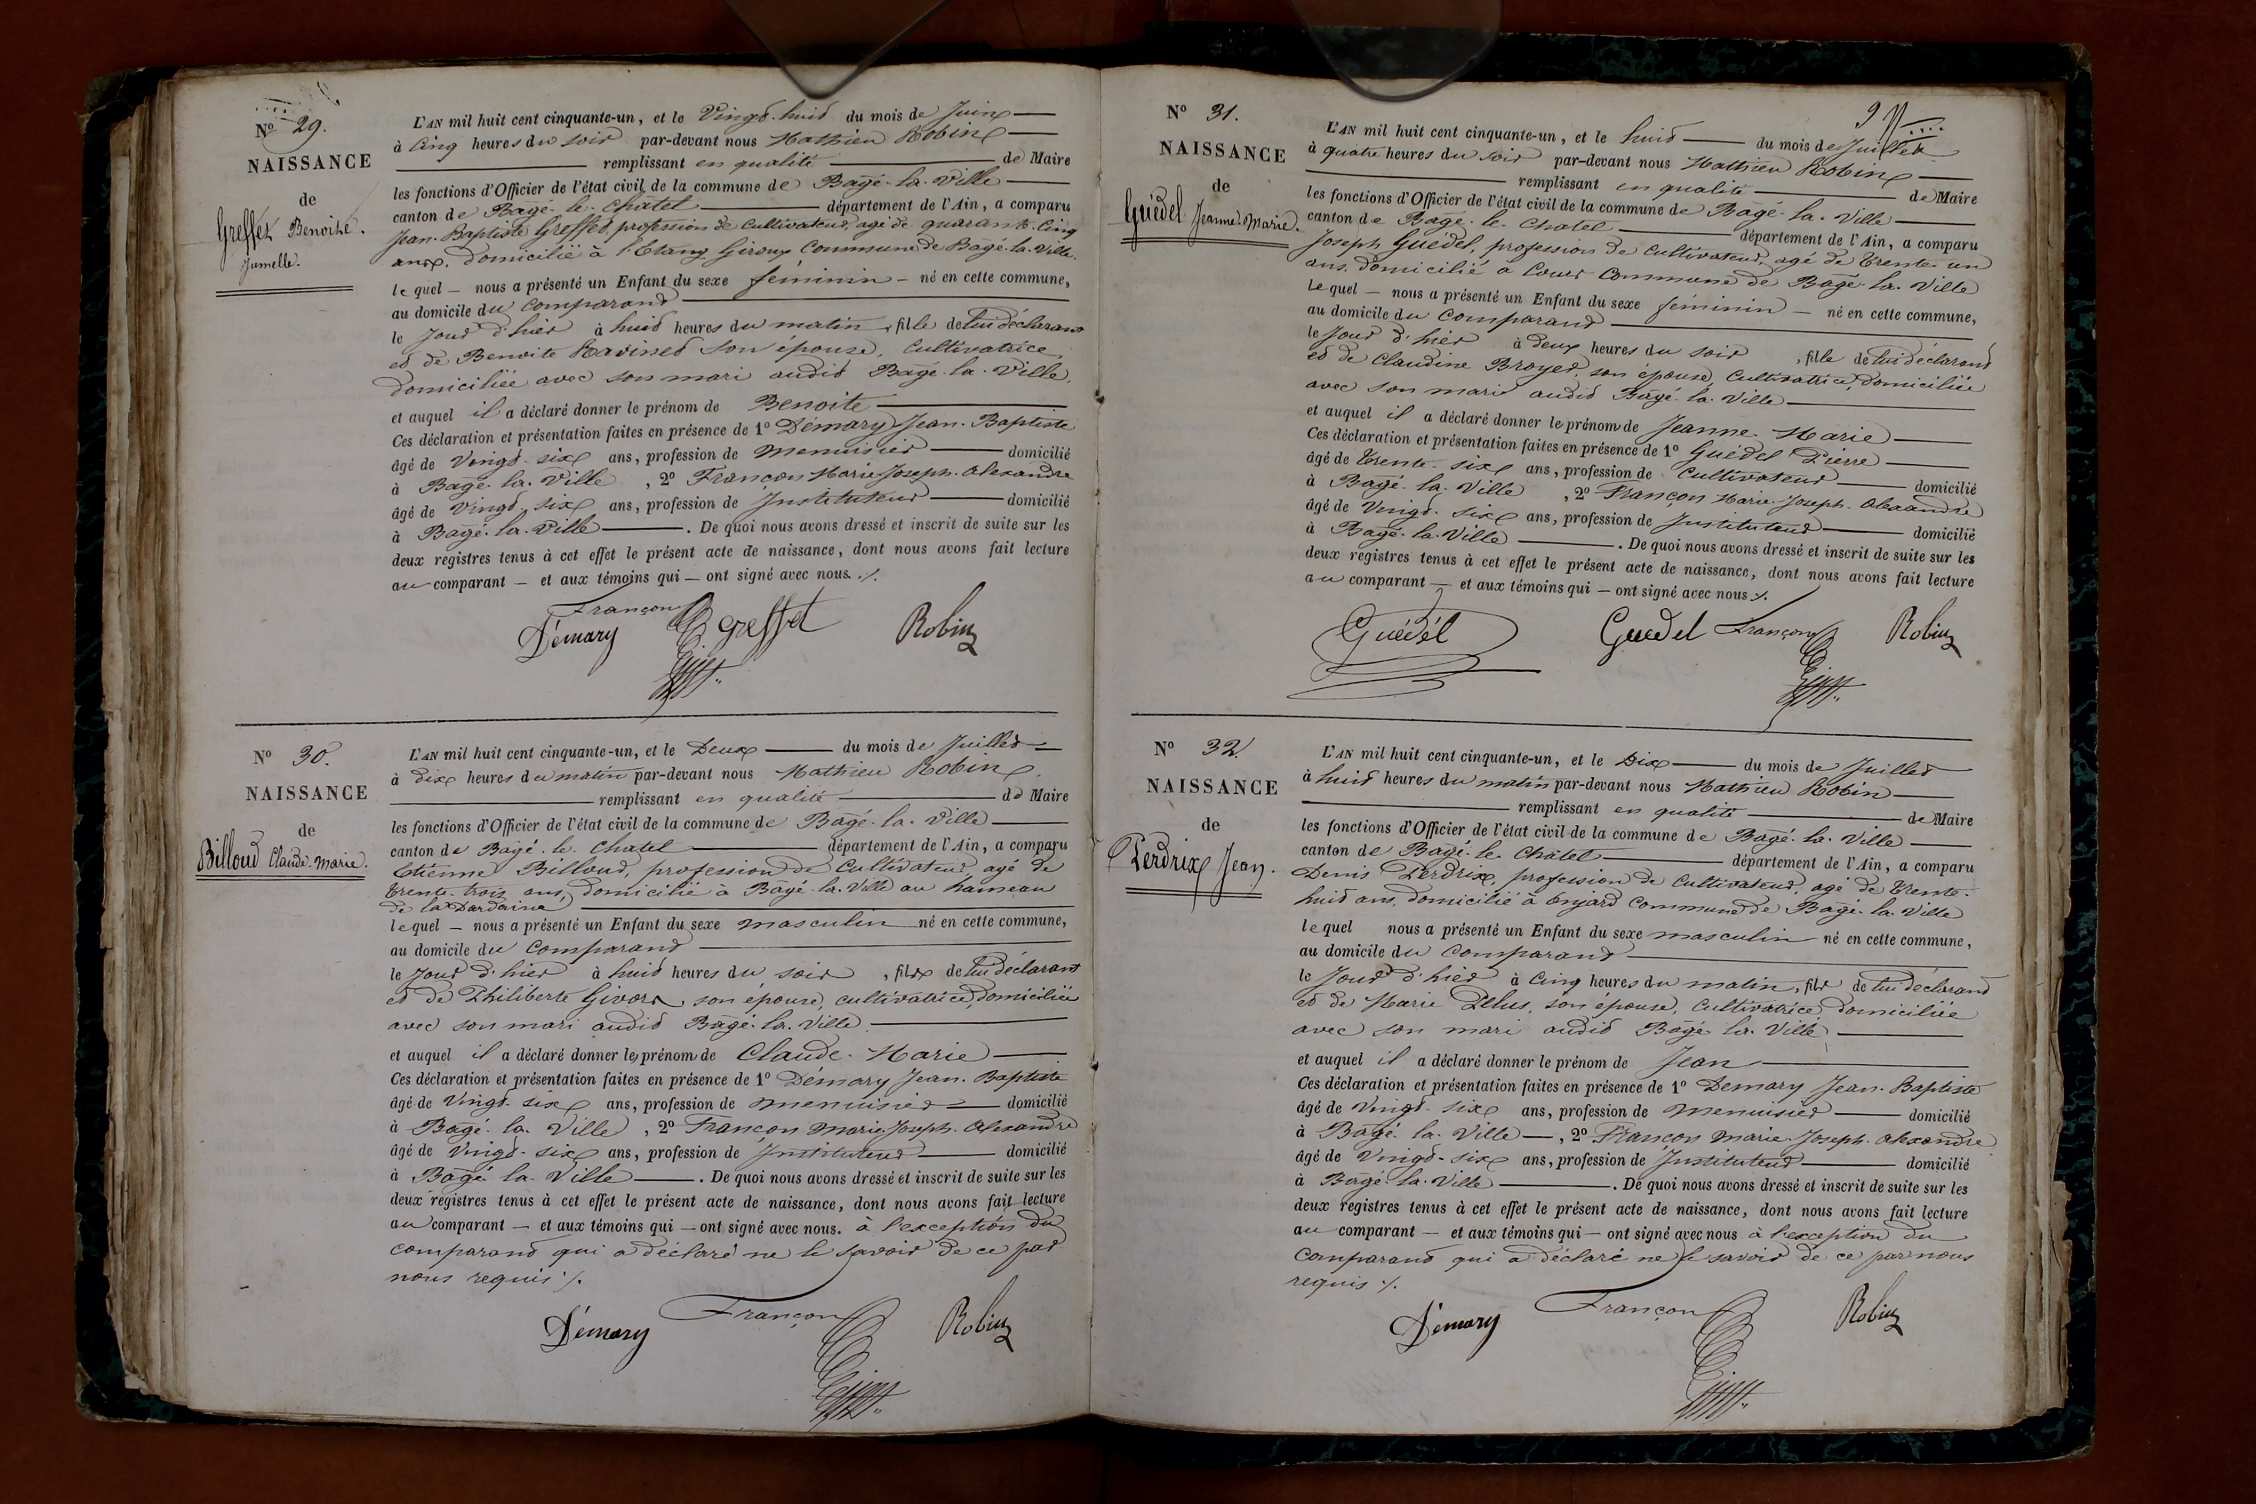 Nº 29.
NAISSANCE
de
Greffet Benoite.
Jumelle.
L'AN mil huit cent cinquante-un, et le Vingt-huit du mois de Juin
à Cinq heures du soir par-devant nous Mathieu Robin
remplissant en qualité de Maire
les fonctions d'Officier de l'état civil de la commune de Bagé-la-Ville
canton de Bagé-le-Chatel département de l'Ain, a comparu
Jean-Baptiste Greffet, profession de Cultivateur, agé de quarante-Cinq
ans, domicilié à l'Etang Giroux Commune de Bagé-la-Ville.
lequel — nous a présenté un Enfant du sexe féminin — né en cette commune,
au domicile du Comparant
le Jour d'hier à huit heures du matin, fille de lui déclarant
et de Benoite Ravinet son épouse, Cultivatrice,
domiciliée avec son mari audit Bagé-la-Ville,
et auquel il a déclaré donner le prénom de Benoite
Ces déclaration et présentation faites en présence de 1º Démary Jean-Baptiste
âgé de Vingt-six ans, profession de Menuisier domicilié
à Bagé-la-Ville, 2º Françon Marie-Joseph-Alexandre
âgé de Vingt-six ans, profession de Instituteur domicilié
à Bagé-la-Ville. De quoi nous avons dressé et inscrit de suite sur les
deux registres tenus à cet effet le présent acte de naissance, dont nous avons fait lecture
au comparant — et aux témoins qui — ont signé avec nous ./.
Françon
Démary Greffet Robin
Nº 30.
NAISSANCE
de
Billoud Claude-Marie.
L'AN mil huit cent cinquante-un, et le Deux du mois de Juillet
à dix heures du matin par-devant nous Mathieu Robin
remplissant en qualité de Maire
les fonctions d'Officier de l'état civil de la commune de Bagé-la-Ville
canton de Bagé-le-Chatel département de l'Ain, a comparu
Etienne Billoud, profession de Cultivateur, agé de
trente-trois ans, domicilié à Bagé-la-Ville au hameau
de la Dardaine
lequel — nous a présenté un Enfant du sexe masculin né en cette commune,
au domicile du Comparant
le Jour d'hier à huit heures du soir, fils de lui déclarant
et de Philiberte Givors, son épouse, cultivatrice, domiciliée
avec son mari audit Bagé-la-Ville.
et auquel il a déclaré donner le prénom de Claude-Marie
Ces déclaration et présentation faites en présence de 1º Démary Jean-Baptiste
âgé de Vingt-six ans, profession de menuisier domicilié
à Bagé-la-Ville, 2º Françon Marie-Joseph-Alexandre
âgé de Vingt-six ans, profession de Instituteur domicilié
à Bagé-la-Ville. De quoi nous avons dressé et inscrit de suite sur les
deux registres tenus à cet effet le présent acte de naissance, dont nous avons fait lecture
au comparant — et aux témoins qui — ont signé avec nous. à l'exception du
comparant qui a déclaré ne le savoir de ce par
nous requis ./.
Démary Françon Robin
Nº 31.
NAISSANCE
de
Guédel Jeanne-Marie.
L'AN mil huit cent cinquante-un, et le huit du mois de Juillet
à quatre heures du soir par-devant nous Mathieu Robin
remplissant en qualité de Maire
les fonctions d'Officier de l'état civil de la commune de Bagé-la-Ville
canton de Bagé-le-Chatel département de l'Ain, a comparu
Joseph Guédel, profession de Cultivateur, agé de trente-un
ans, domicilié à Commune de Bagé-la-Ville
lequel — nous a présenté un Enfant du sexe féminin — né en cette commune,
au domicile du Comparant
le Jour d'hier à deux heures du soir, fille de lui déclarant
et de Claudine Broyer, son épouse, Cultivatrice, domiciliée
avec son mari audit Bagé-la-Ville
et auquel il a déclaré donner le prénom de Jeanne-Marie
Ces déclaration et présentation faites en présence de 1º Guédel Pierre
âgé de trente-six ans, profession de Cultivateur domicilié
à Bagé-la-Ville, 2º Françon Marie-Joseph-Alexandre
âgé de Vingt-six ans, profession de Instituteur domicilié
à Bagé-la-Ville. De quoi nous avons dressé et inscrit de suite sur les
deux registres tenus à cet effet le présent acte de naissance, dont nous avons fait lecture
au comparant — et aux témoins qui — ont signé avec nous ./.
Guédél Guedel Françon Robin
Nº 32.
NAISSANCE
de
Perdrix Jean.
L'AN mil huit cent cinquante-un, et le Dix du mois de Juillet
à huit heures du matin par-devant nous Mathieu Robin
remplissant en qualité de Maire
les fonctions d'Officier de l'état civil de la commune de Bagé-la-Ville
canton de Bagé-le-Châtel département de l'Ain, a comparu
Denis Perdrix, profession de Cultivateur, agé de trente-
huit ans, domicilié à Commune de Bagé-la-Ville
lequel nous a présenté un Enfant du sexe masculin né en cette commune,
au domicile du Comparant
le Jour d'hier à Cinq heures du matin, fils de lui déclarant
et de Marie son épouse, Cultivatrice domiciliée
avec son mari audit Bagé-la-Ville,
et auquel il a déclaré donner le prénom de Jean
Ces déclaration et présentation faites en présence de 1º Demary Jean-Baptiste
âgé de Vingt-six ans, profession de Menuisier domicilié
à Bagé-la-Ville —, 2º Françon Marie-Joseph-Alexandre
âgé de Vingt-six ans, profession de Instituteur domicilié
à Bagé-la-Ville. De quoi nous avons dressé et inscrit de suite sur les
deux registres tenus à cet effet le présent acte de naissance, dont nous avons fait lecture
au comparant — et aux témoins qui — ont signé avec nous à l'exception du
Comparant qui a déclaré ne le savoir de ce par nous
requis ./.
Démary Françon Robin